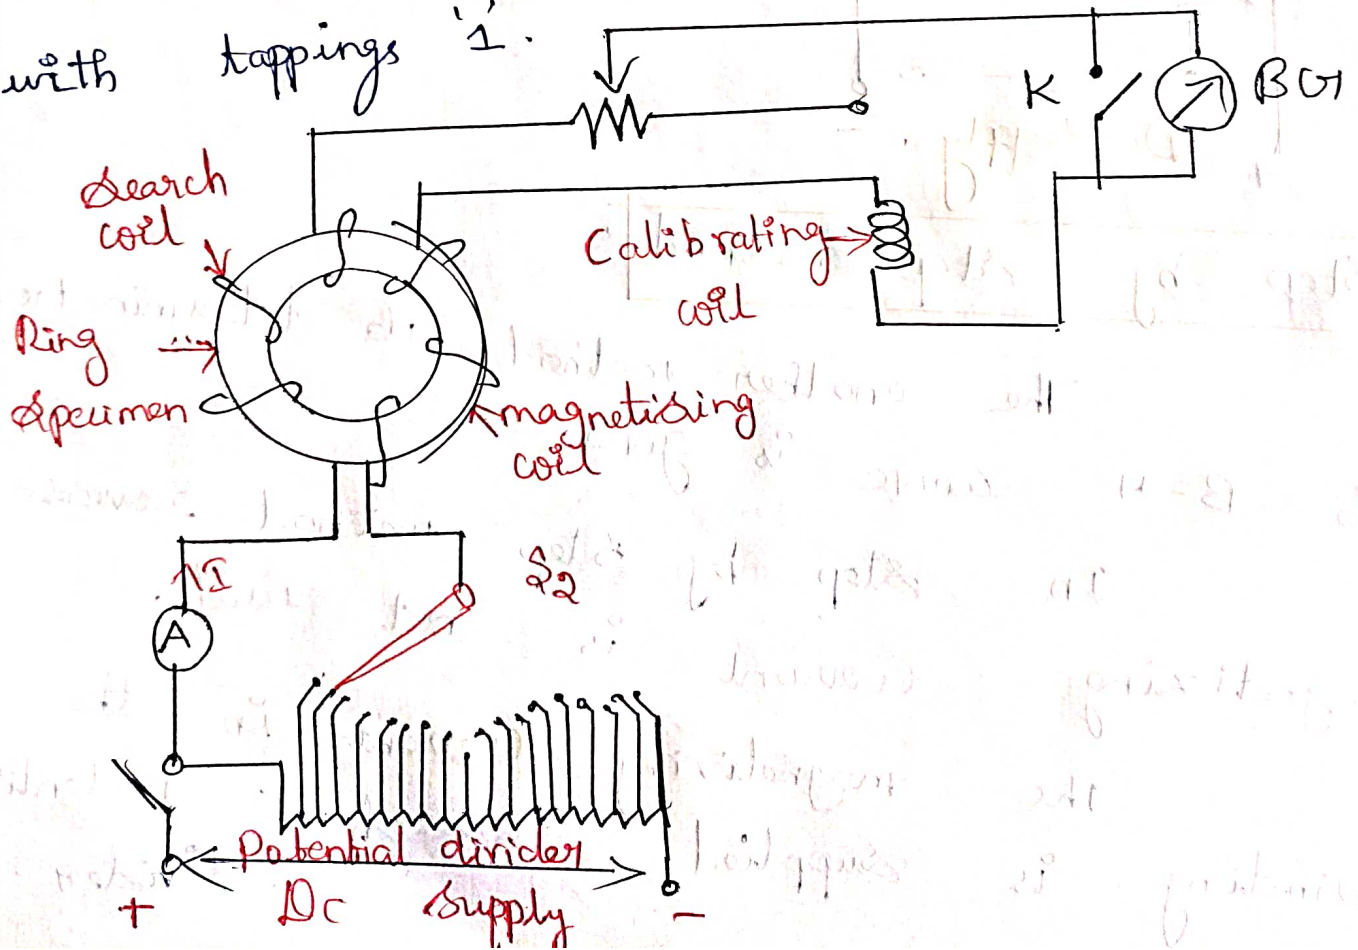 with tappings '1'.
K
BG
Search
coil
Calibrating
coil
Ring
Specimen
magnetising
coil
I
S2
A
Potential divider
+ DC Supply -